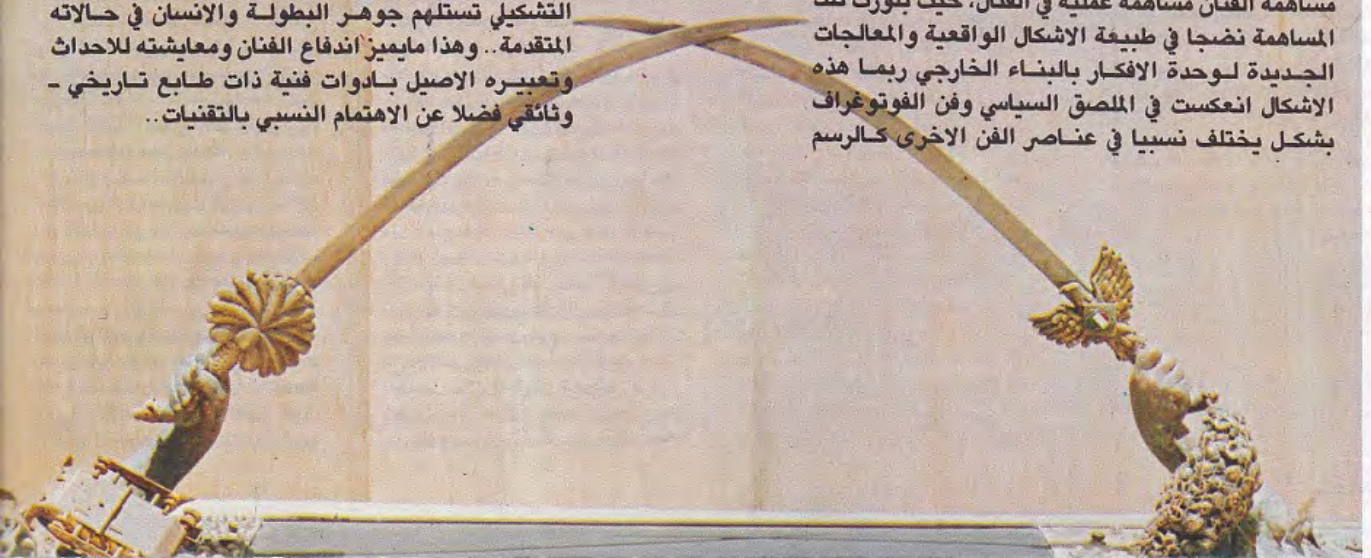 مساهمة الفنان مساهمة عملية في القتال، حيث بلورت تلك
المساهمة نضجا في طبيعة الاشكال الواقعية والمعالجات
الجديدة لوحدة الافكار بالبناء الخارجي ربما هذه
الاشكال انعكست في الملصق السياسي وفن الفوتوغراف
بشكل يختلف نسبيا في عناصر الفن الاخرى كالرسم
التشكيلي تستلهم جوهر البطولة والانسان في حالاته
المتقدمة.. وهذا مايميز اندفاع الفنان ومعايشته للاحداث
وتعبيره الاصيل بادوات فنية ذات طابع تاريخي -
وثائقي فضلا عن الاهتمام النسبي بالتقنيات..